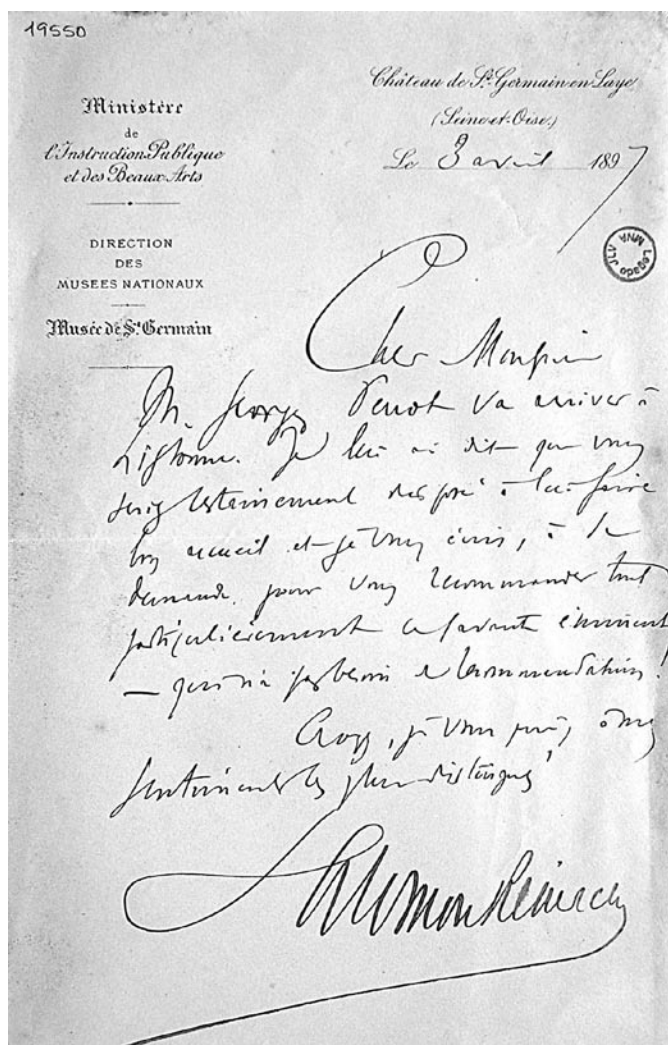 19550
Ministère
de
l'Instruction Publique
et des Beaux-Arts
DIRECTION
DES
MUSEES NATIONAUX
Musée de St Germain
Château de St Germain en Laye
(Seine-et-Oise.)
Le 3 avril 1897
Legado JLV
MNA
Cher Monsieur
M. Georges Perrot va arriver à
Lisbonne. Je lui ai dit que vous
seriez certainement disposé à lui faire
bon accueil et je vous écris, à sa
demande, pour vous recommander tout
particulièrement ce savant éminent
— qui n'a pas besoin de recommandation!
Croyez, je vous prie, à mes
sentiments les plus distingués
Salomon Reinach